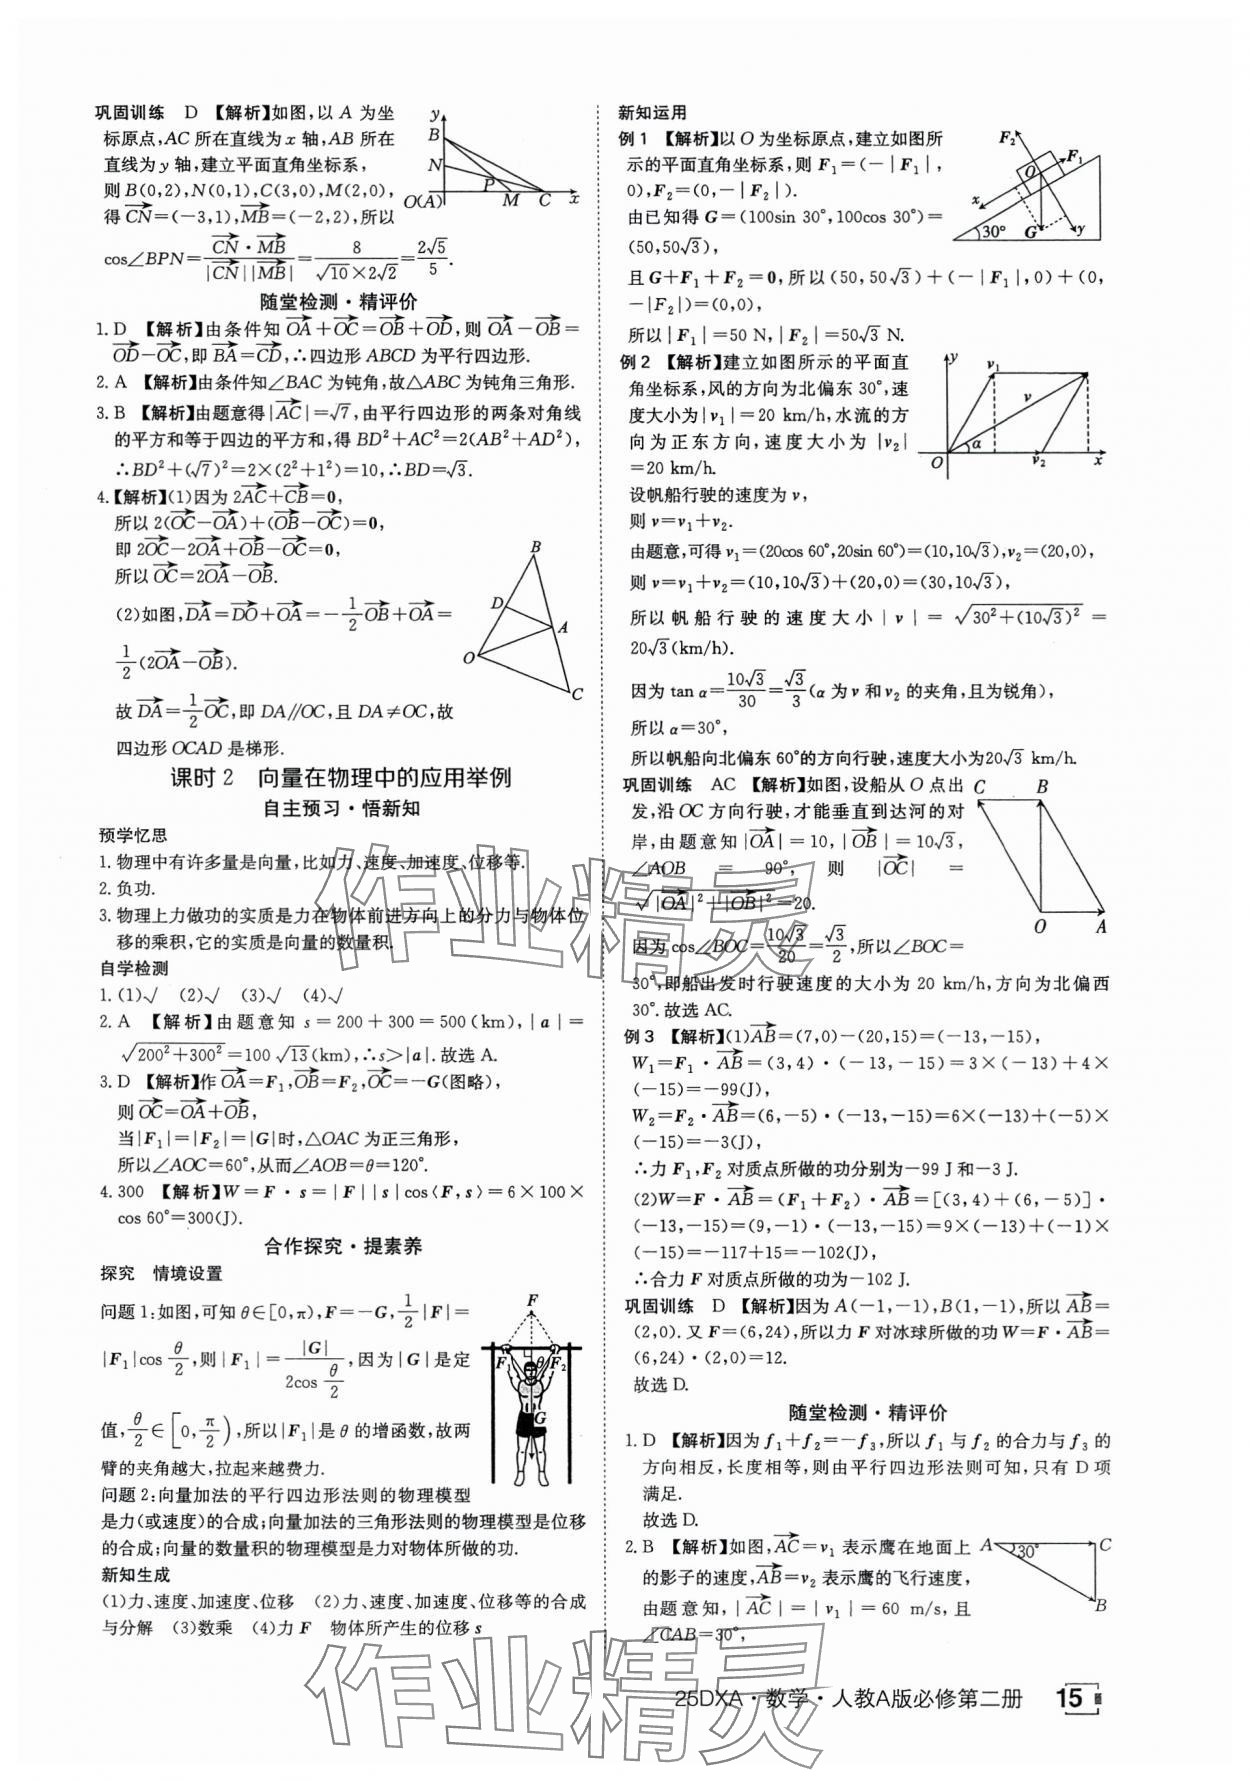 巩固训练 D 【解析】如图,以 A 为坐
标原点,AC 所在直线为 x 轴,AB 所在
直线为 y 轴,建立平面直角坐标系,
则 B(0,2),N(0,1),C(3,0),M(2,0),
得 $\overrightarrow{CN}$=(-3,1),$\overrightarrow{MB}$=(-2,2),所以
cos∠BPN=$\frac{\overrightarrow{CN}·\overrightarrow{MB}}{|\overrightarrow{CN}||\overrightarrow{MB}|}$=$\frac{8}{\sqrt{10}×2\sqrt{2}}$=$\frac{2\sqrt{5}}{5}$.
y B N P O(A) M C x
随堂检测·精评价
1. D 【解析】由条件知 $\overrightarrow{OA}$+$\overrightarrow{OC}$=$\overrightarrow{OB}$+$\overrightarrow{OD}$,则 $\overrightarrow{OA}$-$\overrightarrow{OB}$=
$\overrightarrow{OD}$-$\overrightarrow{OC}$,即 $\overrightarrow{BA}$=$\overrightarrow{CD}$,∴四边形 ABCD 为平行四边形.
2. A 【解析】由条件知∠BAC 为钝角,故△ABC 为钝角三角形.
3. B 【解析】由题意得|$\overrightarrow{AC}$|=√7,由平行四边形的两条对角线
的平方和等于四边的平方和,得 BD²+AC²=2(AB²+AD²),
∴BD²+(√7)²=2×(2²+1²)=10,∴BD=√3.
4.【解析】(1)因为 2$\overrightarrow{AC}$+$\overrightarrow{CB}$=0,
所以 2($\overrightarrow{OC}$-$\overrightarrow{OA}$)+($\overrightarrow{OB}$-$\overrightarrow{OC}$)=0,
即 2$\overrightarrow{OC}$-2$\overrightarrow{OA}$+$\overrightarrow{OB}$-$\overrightarrow{OC}$=0,
所以 $\overrightarrow{OC}$=2$\overrightarrow{OA}$-$\overrightarrow{OB}$.
(2)如图,$\overrightarrow{DA}$=$\overrightarrow{DO}$+$\overrightarrow{OA}$=-$\frac{1}{2}$$\overrightarrow{OB}$+$\overrightarrow{OA}$=
$\frac{1}{2}$(2$\overrightarrow{OA}$-$\overrightarrow{OB}$).
故 $\overrightarrow{DA}$=$\frac{1}{2}$$\overrightarrow{OC}$,即 DA∥OC,且 DA≠OC,故
四边形 OCAD 是梯形.
B D A O C
课时 2 向量在物理中的应用举例
自主预习·悟新知
预学忆思
1. 物理中有许多量是向量,比如力、速度、加速度、位移等.
2. 负功.
3. 物理上力做功的实质是力在物体前进方向上的分力与物体位
移的乘积,它的实质是向量的数量积.
自学检测
1. (1)√ (2)√ (3)√ (4)√
2. A 【解析】由题意知 s=200+300=500(km),|a|=
$\sqrt{200²+300²}$=100√13(km),∴s>|a|.故选 A.
3. D 【解析】作 $\overrightarrow{OA}$=F₁,$\overrightarrow{OB}$=F₂,$\overrightarrow{OC}$=-G(图略),
则 $\overrightarrow{OC}$=$\overrightarrow{OA}$+$\overrightarrow{OB}$,
当|F₁|=|F₂|=|G|时,△OAC 为正三角形,
所以∠AOC=60°,从而∠AOB=θ=120°.
4. 300 【解析】W=F·s=|F||s|cos⟨F,s⟩=6×100×
cos 60°=300(J).
合作探究·提素养
探究 情境设置
问题 1:如图,可知 θ∈[0,π),F=-G,$\frac{1}{2}$|F|=
|F₁|cos $\frac{θ}{2}$,则|F₁|=$\frac{|G|}{2cos\frac{θ}{2}}$,因为|G|是定
值,$\frac{θ}{2}$∈[0,$\frac{π}{2}$),所以|F₁|是 θ 的增函数,故两
臂的夹角越大,拉起来越费力.
F F₁ θ F₂ G
问题 2:向量加法的平行四边形法则的物理模型
是力(或速度)的合成;向量加法的三角形法则的物理模型是位移
的合成;向量的数量积的物理模型是力对物体所做的功.
新知生成
(1)力、速度、加速度、位移 (2)力、速度、加速度、位移等的合成
与分解 (3)数乘 (4)力 F 物体所产生的位移 s
新知运用
例 1 【解析】以 O 为坐标原点,建立如图所
示的平面直角坐标系,则 F₁=(-|F₁|,
0),F₂=(0,-|F₂|).
由已知得 G=(100sin 30°,100cos 30°)=
(50,50√3),
F₂ F₁ O x 30° G y
且 G+F₁+F₂=0,所以(50,50√3)+(-|F₁|,0)+(0,
-|F₂|)=(0,0),
所以|F₁|=50 N,|F₂|=50√3 N.
例 2 【解析】建立如图所示的平面直
角坐标系,风的方向为北偏东 30°,速
度大小为|v₁|=20 km/h,水流的方
向为正东方向,速度大小为|v₂|
=20 km/h.
y v₁ v α O v₂ x
设帆船行驶的速度为 v,
则 v=v₁+v₂.
由题意,可得 v₁=(20cos 60°,20sin 60°)=(10,10√3),v₂=(20,0),
则 v=v₁+v₂=(10,10√3)+(20,0)=(30,10√3),
所以帆船行驶的速度大小|v|=$\sqrt{30²+(10\sqrt{3})²}$=
20√3(km/h).
因为 tan α=$\frac{10\sqrt{3}}{30}$=$\frac{\sqrt{3}}{3}$(α 为 v 和 v₂ 的夹角,且为锐角),
所以 α=30°,
所以帆船向北偏东 60°的方向行驶,速度大小为20√3 km/h.
巩固训练 AC 【解析】如图,设船从 O 点出
发,沿 OC 方向行驶,才能垂直到达河的对
岸,由题意知|$\overrightarrow{OA}$|=10,|$\overrightarrow{OB}$|=10√3,
∠AOB=90°,则|$\overrightarrow{OC}$|=
$\sqrt{|\overrightarrow{OA}|²+|\overrightarrow{OB}|²}$=20.
因为 cos∠BOC=$\frac{10\sqrt{3}}{20}$=$\frac{\sqrt{3}}{2}$,所以∠BOC=
C B O A
30°,即船出发时行驶速度的大小为 20 km/h,方向为北偏西
30°.故选 AC.
例 3 【解析】(1)$\overrightarrow{AB}$=(7,0)-(20,15)=(-13,-15),
W₁=F₁·$\overrightarrow{AB}$=(3,4)·(-13,-15)=3×(-13)+4×
(-15)=-99(J),
W₂=F₂·$\overrightarrow{AB}$=(6,-5)·(-13,-15)=6×(-13)+(-5)×
(-15)=-3(J),
∴力 F₁,F₂ 对质点所做的功分别为-99 J 和-3 J.
(2)W=F·$\overrightarrow{AB}$=(F₁+F₂)·$\overrightarrow{AB}$=[(3,4)+(6,-5)]·
(-13,-15)=(9,-1)·(-13,-15)=9×(-13)+(-1)×
(-15)=-117+15=-102(J),
∴合力 F 对质点所做的功为-102 J.
巩固训练 D 【解析】因为 A(-1,-1),B(1,-1),所以 $\overrightarrow{AB}$=
(2,0).又 F=(6,24),所以力 F 对冰球所做的功 W=F·$\overrightarrow{AB}$=
(6,24)·(2,0)=12.
故选 D.
随堂检测·精评价
1. D 【解析】因为 f₁+f₂=-f₃,所以 f₁ 与 f₂ 的合力与 f₃ 的
方向相反,长度相等,则由平行四边形法则可知,只有 D 项
满足.
故选 D.
2. B 【解析】如图,$\overrightarrow{AC}$=v₁ 表示鹰在地面上
的影子的速度,$\overrightarrow{AB}$=v₂ 表示鹰的飞行速度,
由题意知,|$\overrightarrow{AC}$|=|v₁|=60 m/s,且
∠CAB=30°,
A 30° C B
作业精灵
作业精灵
25DXA·数学·人教A版必修第二册 15